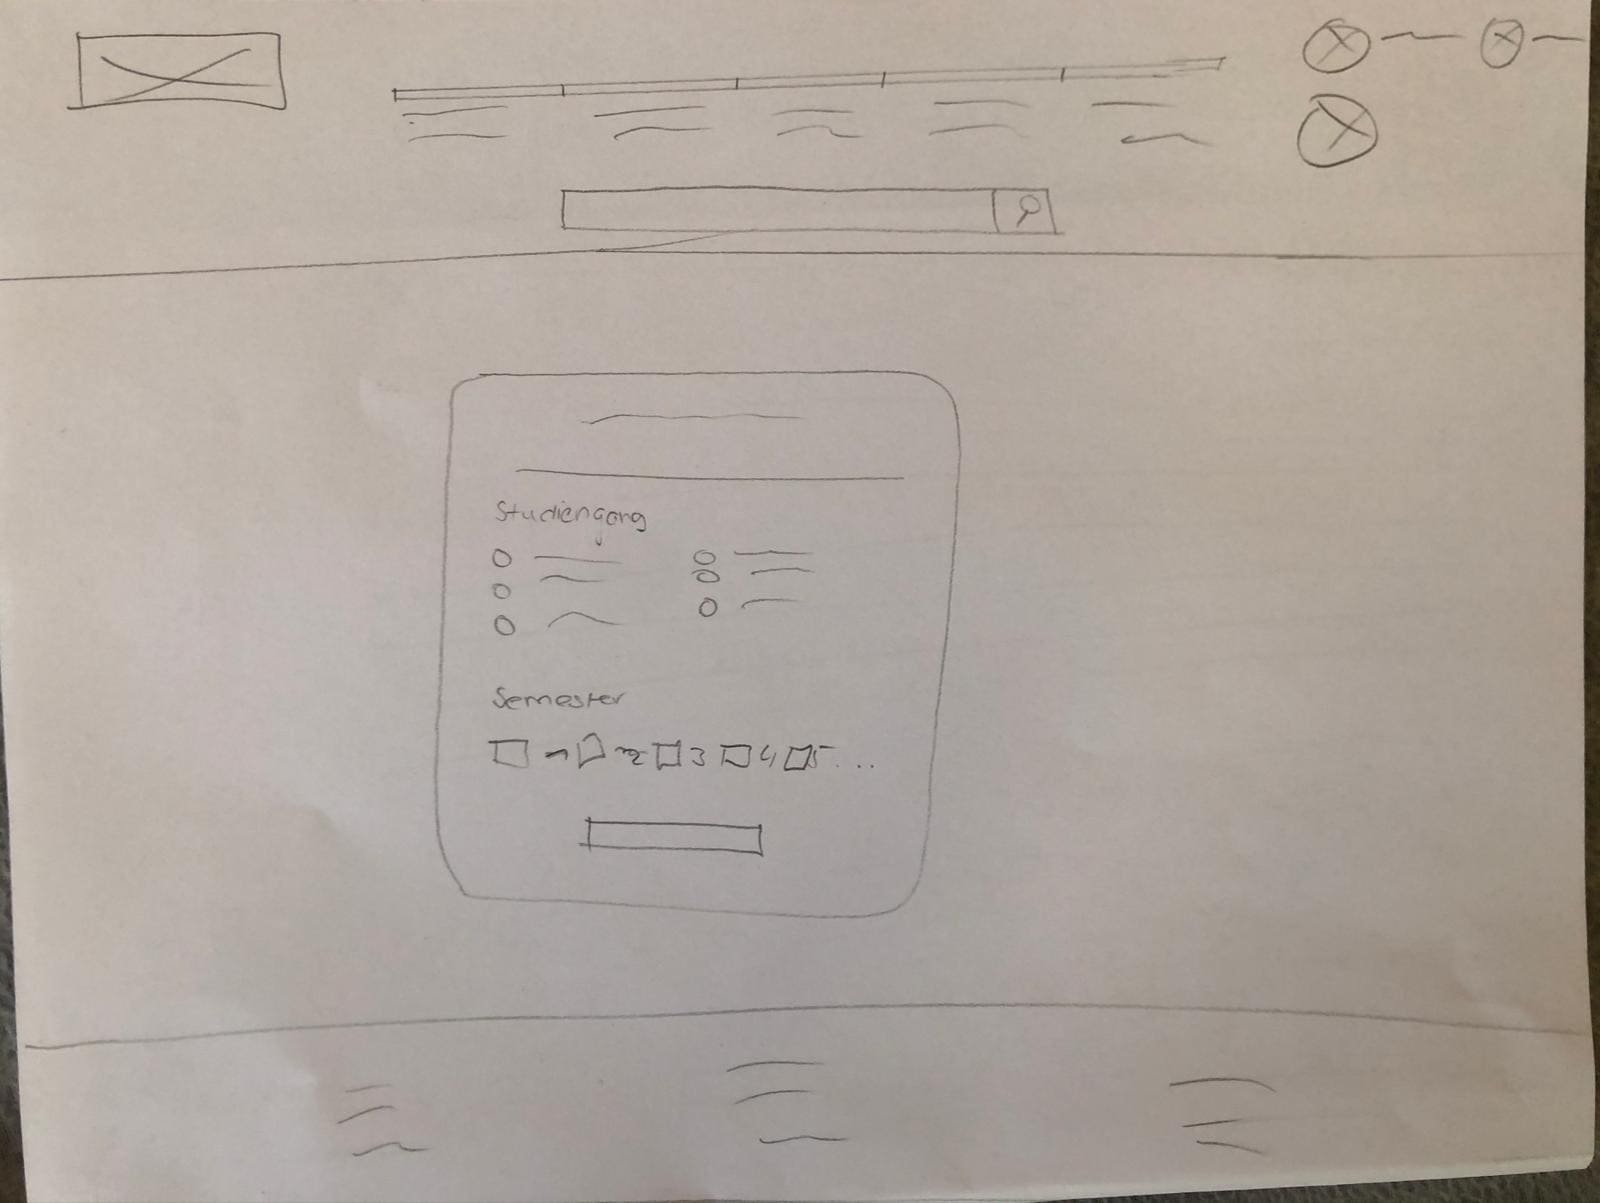 Studiengang
Semester
1 2 3 4 5 ...